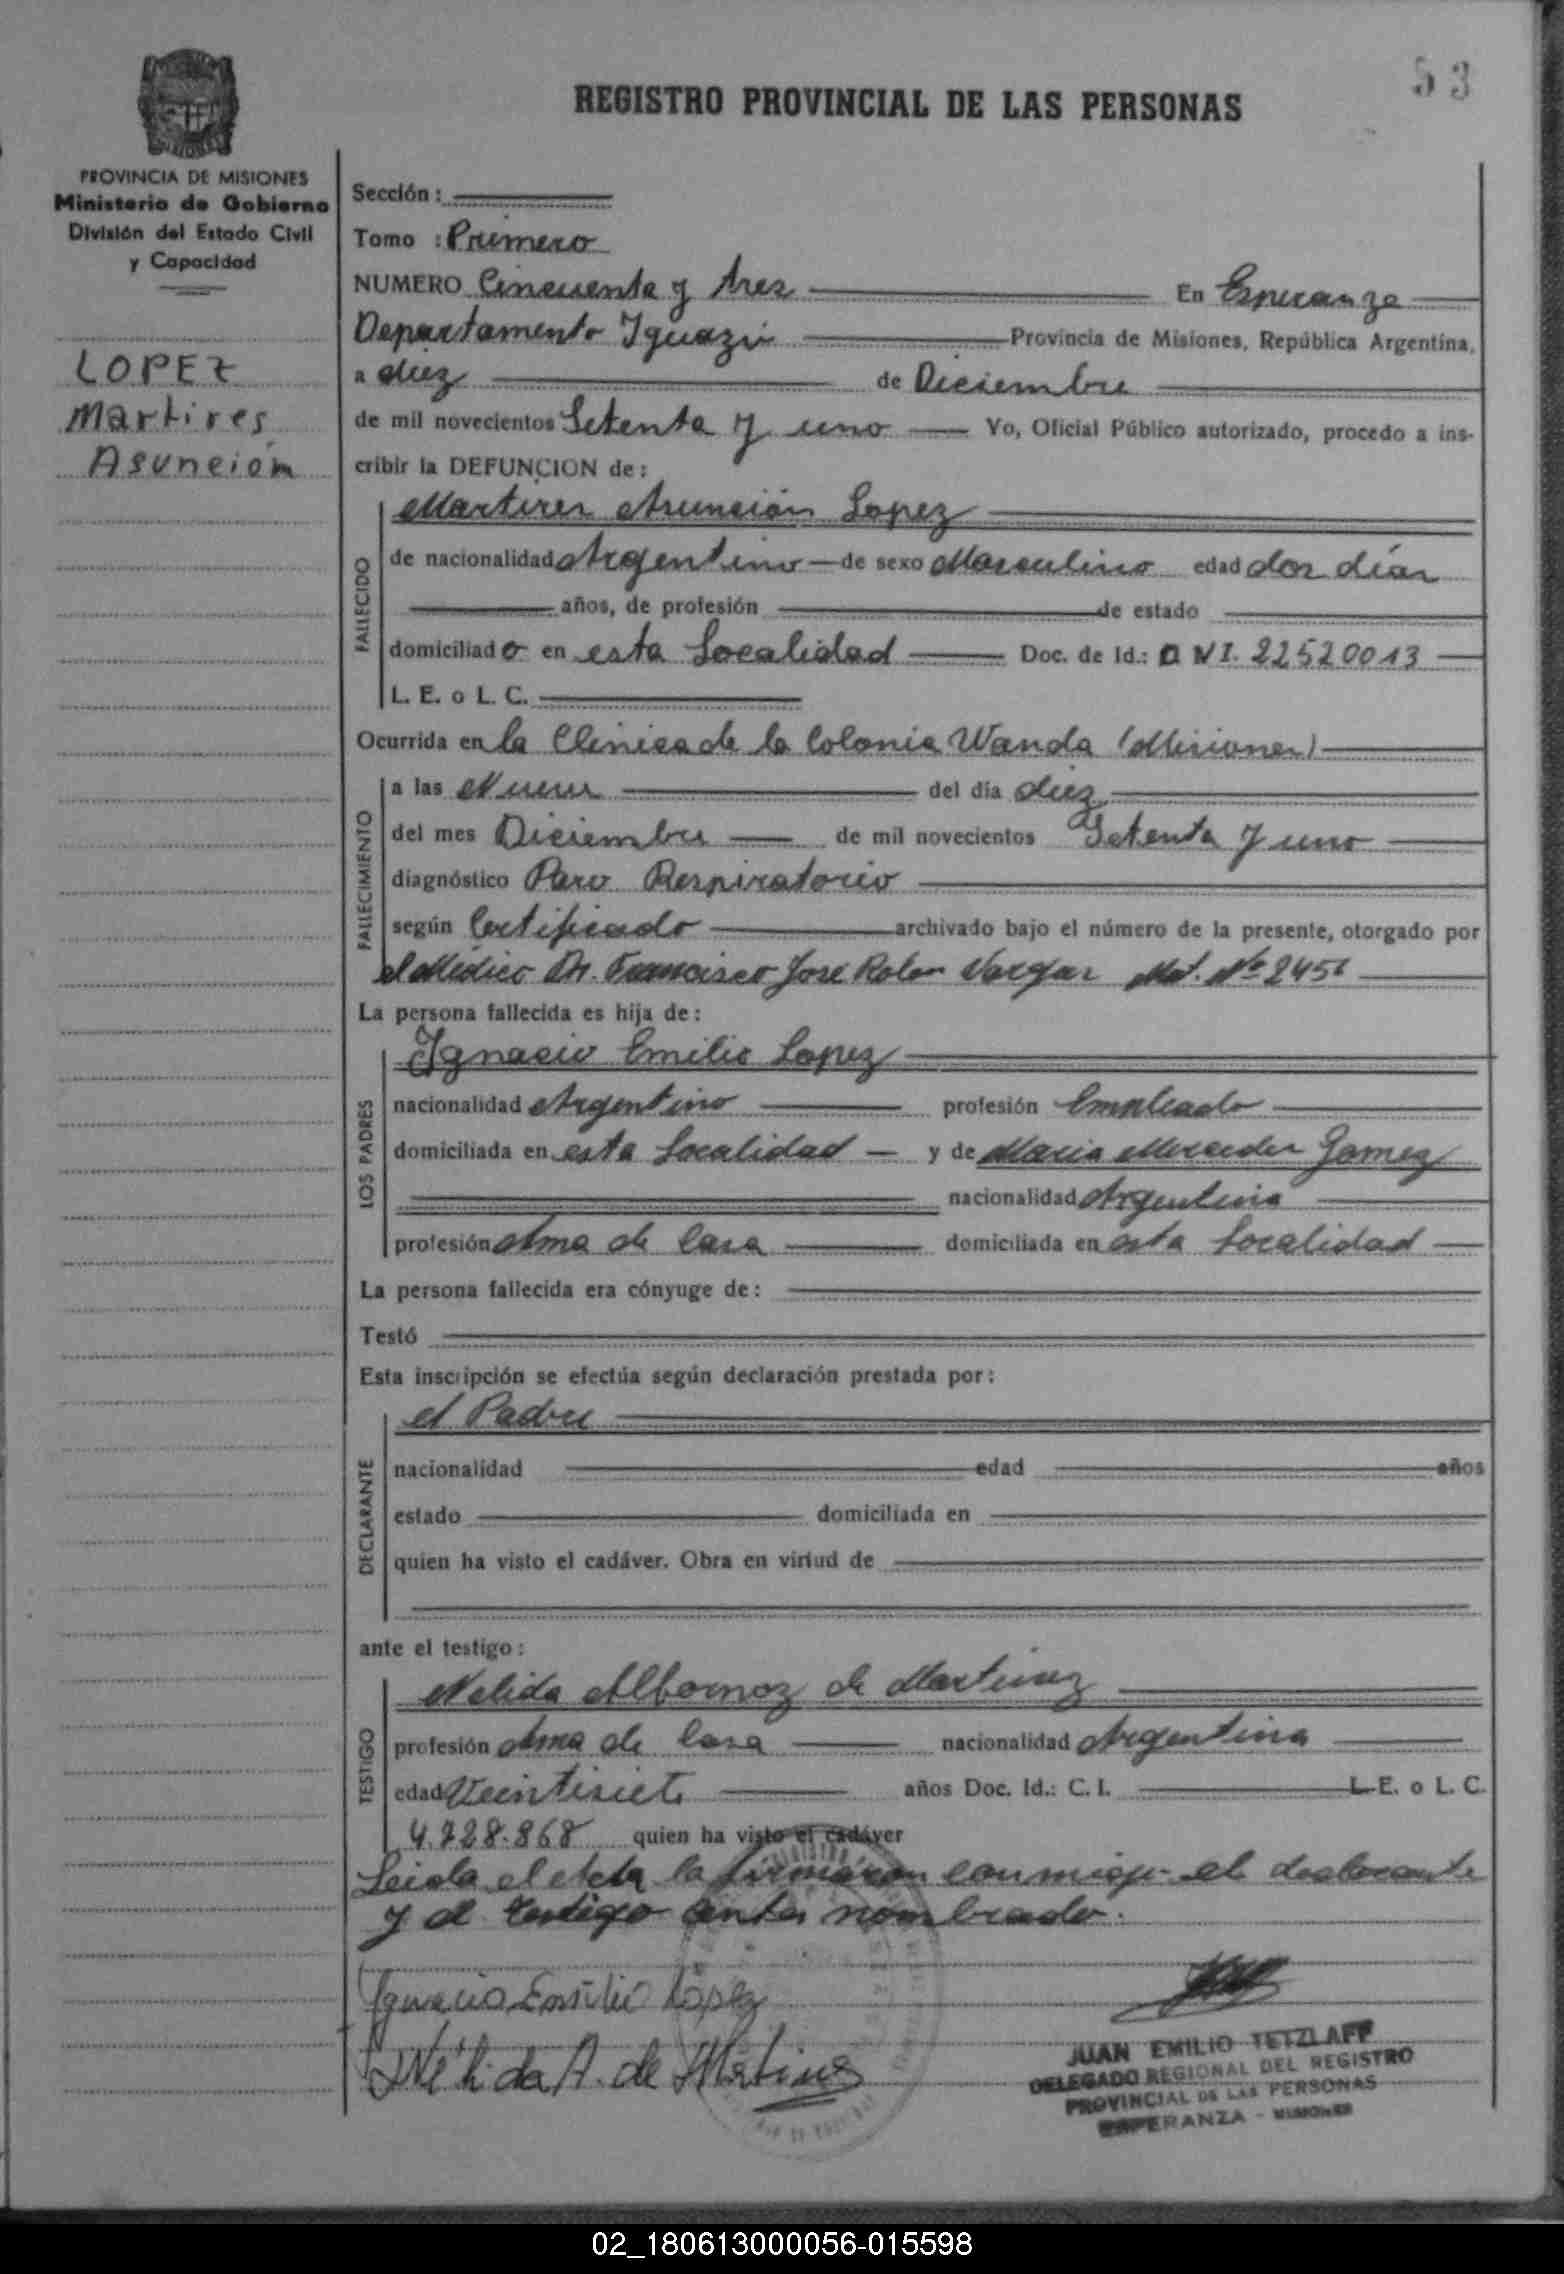 53
REGISTRO PROVINCIAL DE LAS PERSONAS
PROVINCIA DE MISIONES
Ministerio de Gobierno
División del Estado Civil
y Capacidad
LOPEZ
Martires
Asunción
Sección:
Tomo : Primero
NUMERO Cincuenta y tres En Esperanza
Departamento Iguazú Provincia de Misiones, República Argentina,
a diez de Diciembre
de mil novecientos Setenta y uno Yo, Oficial Público autorizado, procedo a ins-
cribir la DEFUNCION de:
FALLECIDO
Martires Asunción Lopez
de nacionalidad Argentino de sexo Masculino edad dos días
años, de profesión de estado
domiciliado en esta Localidad Doc. de Id.: D N I. 22520013
L. E. o L. C.
Ocurrida en la Clinica de la Colonia Wanda (Misiones)
FALLECIMIENTO
a las Nueve del día diez
del mes Diciembre de mil novecientos Setenta y uno
diagnóstico Paro Respiratorio
según Certificado archivado bajo el número de la presente, otorgado por
el Médico Dr. Francisco José Rolon Vargas Mat. Nº 2451
La persona fallecida es hija de:
LOS PADRES
Ignacio Emilio Lopez
nacionalidad Argentino profesión Empleado
domiciliada en esta Localidad y de Maria Mercedes Gomez
nacionalidad Argentina
profesión Ama de Casa domiciliada en esta Localidad
La persona fallecida era cónyuge de:
Testó
Esta inscripción se efectúa según declaración prestada por:
DECLARANTE
el Padre
nacionalidad edad años
estado domiciliada en
quien ha visto el cadáver. Obra en virtud de
ante el testigo:
TESTIGO
Nelida Albornoz de Martinez
profesión Ama de Casa nacionalidad Argentina
edad Veintisiete años Doc. Id.: C. I. L. E. o L. C.
4.728.868 quien ha visto el cadáver
Leida el Acta la firmaron conmigo el declarante
y el testigo antes nombrado.
Ignacio Emilio López
Nélida A. de Martinez
JUAN EMILIO TETZLAFF
DELEGADO REGIONAL DEL REGISTRO
PROVINCIAL DE LAS PERSONAS
ESPERANZA - MISIONES
02_180613000056-015598